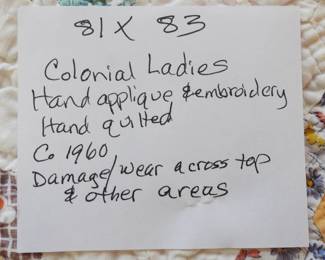 81 X 83
Colonial Ladies
Hand applique & embroidery
Hand quilted
Co 1960
Damage/wear across top
& other areas